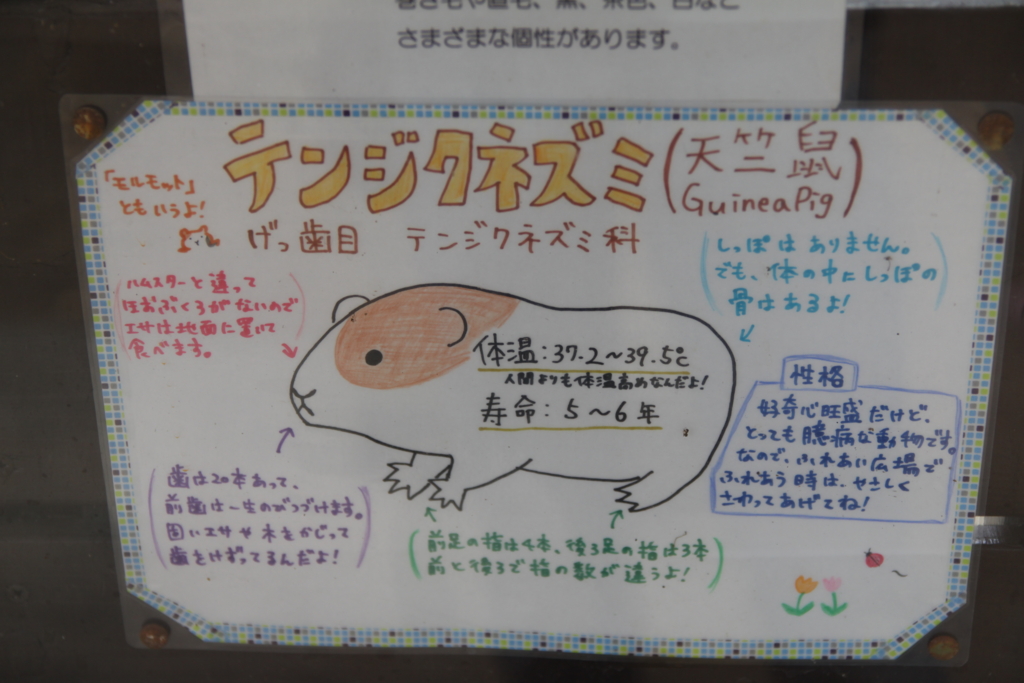 さまざまな個性があります。
テンジクネズミ
(天竺鼠
GuineaPig)
「モルモット」
ともいうよ!
げっ歯目 テンジクネズミ科
しっぽはありません。
でも、体の中にしっぽの
骨はあるよ!
ハムスターと違って
ほおぶくろがないので
エサは地面に置いて
食べます。
体温:37.2～39.5℃
人間よりも体温高めなんだよ!
寿命:5～6年
性格
好奇心旺盛だけど、
とっても臆病な動物です。
なので、ふれあい広場で
ふれあう時は、やさしく
さわってあげてね!
歯は20本あって、
前歯は一生のびつづけます。
固いエサや木をかじって
歯をけずってるんだよ!
前足の指は4本、後ろ足の指は3本
前と後ろで指の数が違うよ!